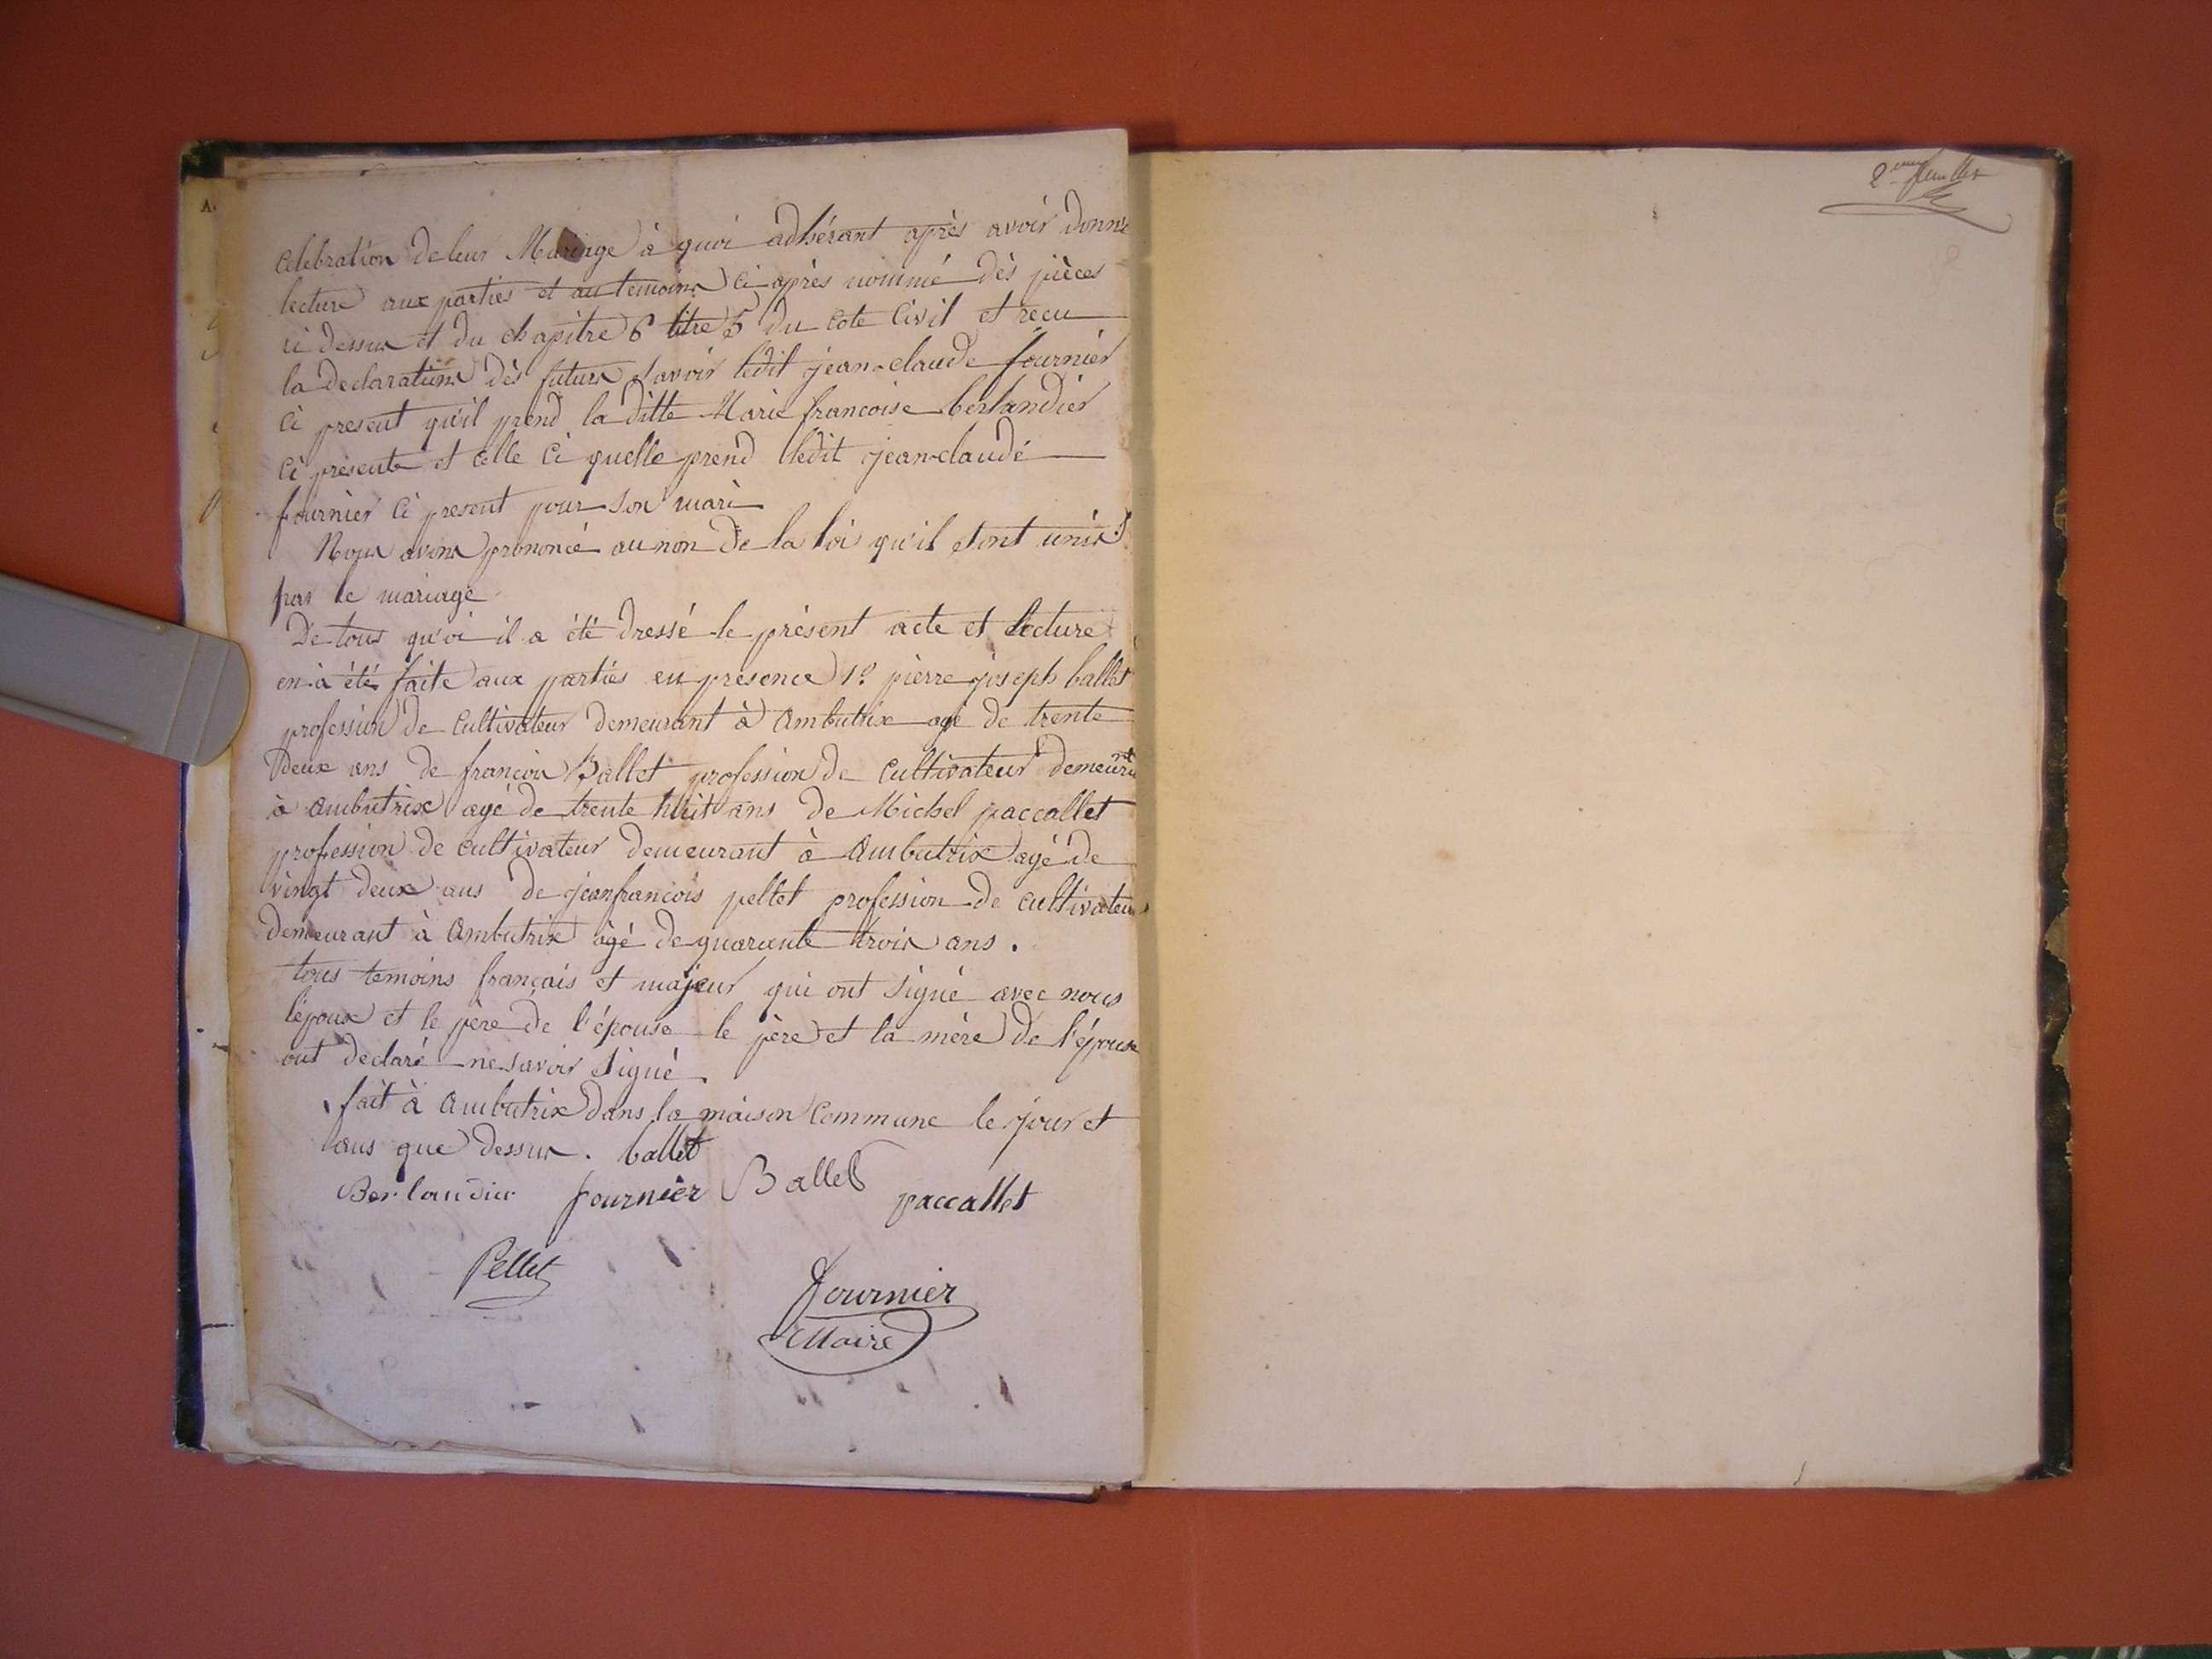 Celebration de leur Mariage à quoi adhérant après avoir donné
lecture aux parties et au temoins ci après nommé dès pièces
ci dessus et du chapitre 6 titre 5 du Cote Civil et recu
la declarations dès futurs savoir ledit jean-claude fournier
Ci present qu'il prend la ditte Marie francoise berlandier
Ci présente et Celle Ci quelle prend ledit jean-claude
fournier Ci present pour son mari
Nous avons prononcé au non de la loi qu'il sont unis
par le mariage
De tous qu'oi il a été dressé le présent acte et lecture
en à été faite aux parties en présence 1º pierre joseph ballet
profession de Cultivateur demeurant à Ambutrix agé de trente
deux ans de francois Ballet profession de Cultivateur demeurant
à Ambutrix agé de trente huit ans de Michel paccallet
profession de Cultivateur demeurant à Ambutrix agé de
vingt deux ans de jeanfrancois pellet profession de Cultivateur
demeurant à Ambutrix agé de quarante trois ans.
tous temoins français et majeur qui ont signé avec nous
l'époux et le père de l'épouse le père et la mère de l'épouse
ont declaré ne savoir signé
fait à Ambutrix dans la maison Commune le jour et
ans que dessus. ballet
Berlandier fournier Ballet paccallet
Pellet
Fournier
Maire
2eme feuillet